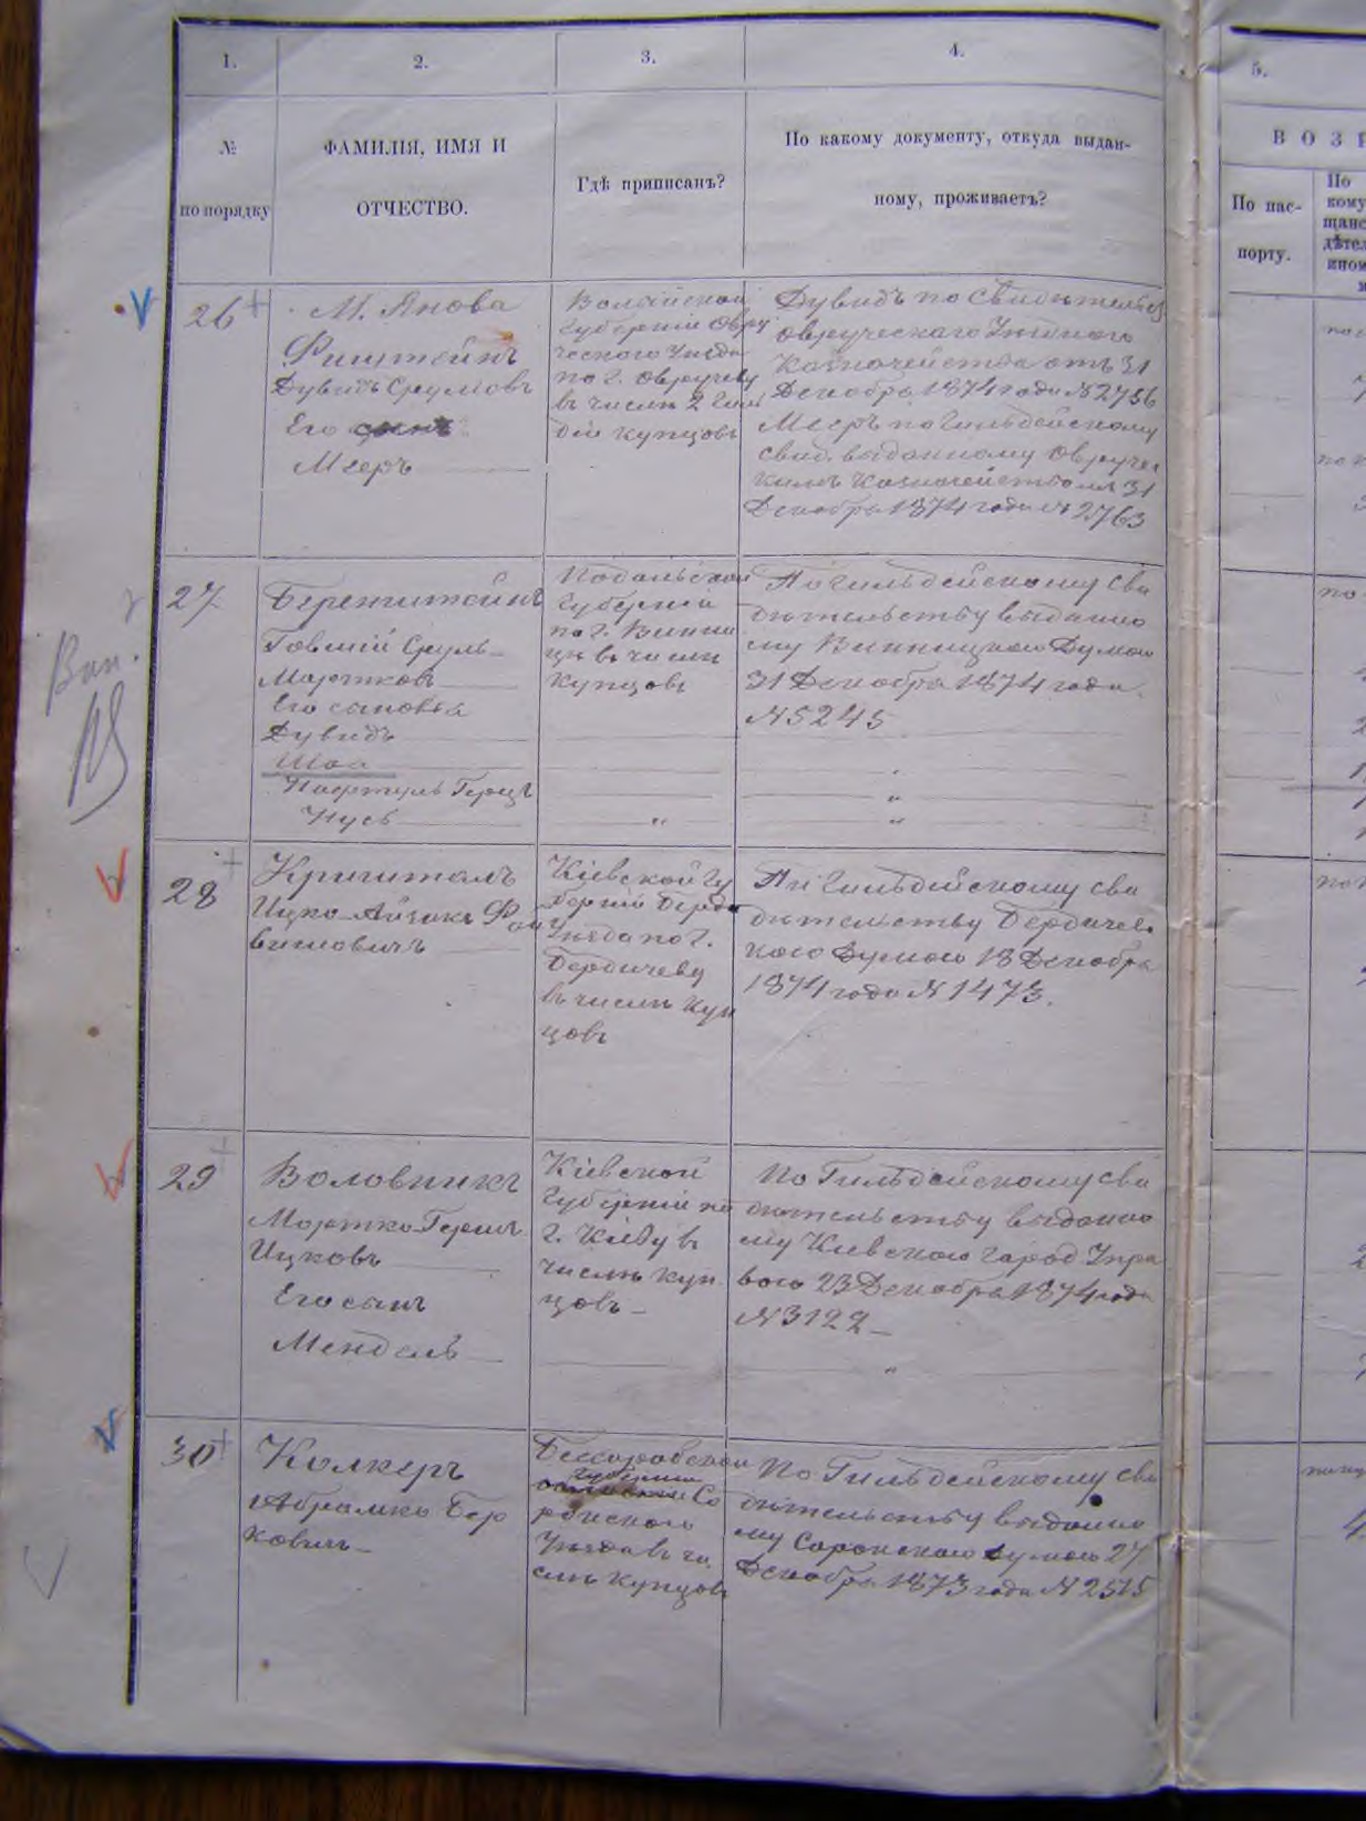 1.
2.
3.
4.
5.
№
по порядку
ФАМИЛІЯ, ИМЯ И
ОТЧЕСТВО.
Гдѣ приписанъ?
По какому документу, откуда выдан-
ному, проживаетъ?
ВОЗР
По пас-
порту.
По
кому
щанс
дѣтел
ином
26
М. Янова
Фиштейнъ
Дувидъ Срулевъ
Его сынъ
Мееръ
Волынской
Губерніи Овру
ческаго Уезда
по г. Овручеву
въ числѣ 2 Гиль
діи купцовъ
Дувидъ по Свидѣтельст
Овруческаго Уезднаго
Казначейства отъ 31
Декабря 1874 года №2756
Меєръ по гильдейскому
свид. выданному Овручес
кимъ Казначействомъ 31
Декабря 1874 года № 2763
27
Беренштейнъ
Говшій Сруль
Мортковъ
Его сыновья
Дувидъ
Шоа
Нафтуль Герцъ
Нусь
Подольской
Губерніи
по г. Винни
цѣ въ числѣ
купцовъ
По гильдейскому сви
дѣтельству выданно
му Винницкою Думою
31 Декабря 1874 года
№5245
28
Кришталъ
Ицко-Айзикъ Фай
вишовичъ
Кіевской Гу
берніи Берди
Уезда по г.
Бердичеву
въ числѣ куп
цовъ
По Гильдейскому сви
дѣтельству Бердичевс
кою Думою 18 Декабря
1874 года № 1473.
29
Воловникъ
Мортко-Гершъ
Ицковъ
Его сынъ
Мендель
Кіевской
Губерніи по
г. Кіеву въ
числѣ куп
цовъ
По Гильдейскому сви
дѣтельству выданно
му Киевскою город Упра
вою 23 Декабря 1874 года
№3122
30
Колкеръ
Абрамко Бер
ковичъ
Бессарабской
губерніи
Со
рокскаго
Уезда въ чи
слѣ купцовъ
По Гильдейскому сви
дѣтельству выданно
му Сорокскою думою 27
Декабря 1873 года № 2515